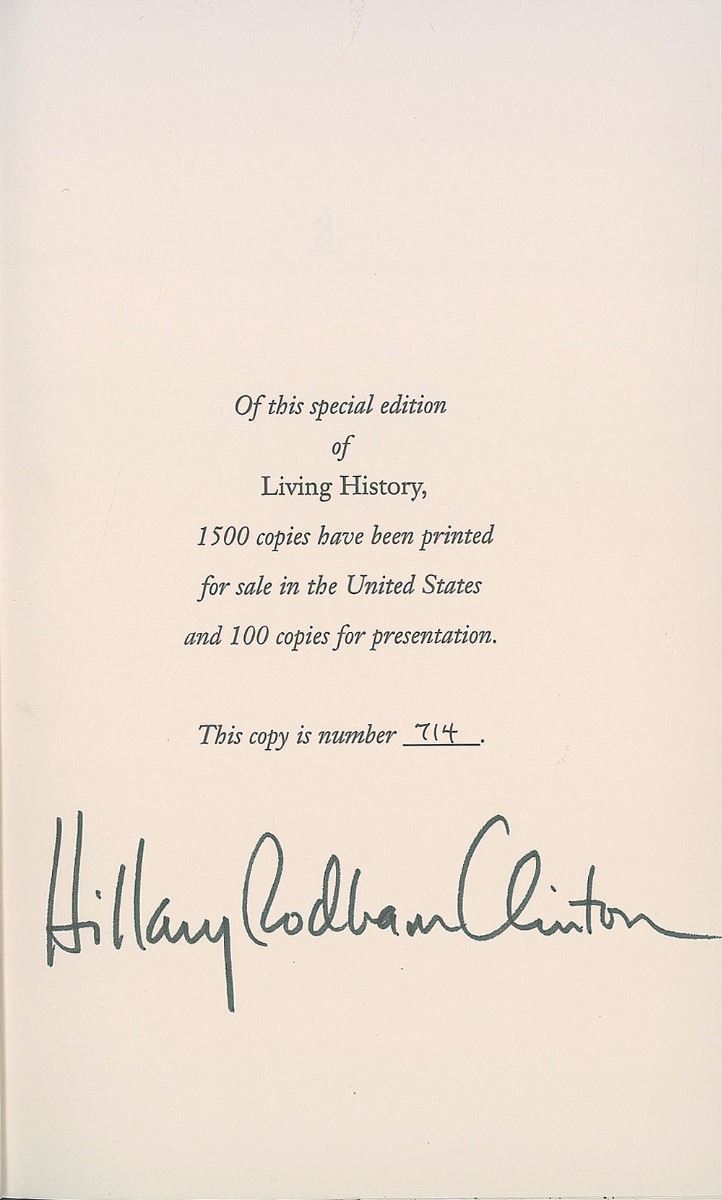 Of this special edition
of
Living History,
1500 copies have been printed
for sale in the United States
and 100 copies for presentation.
This copy is number 714.
Hillary Rodham Clinton